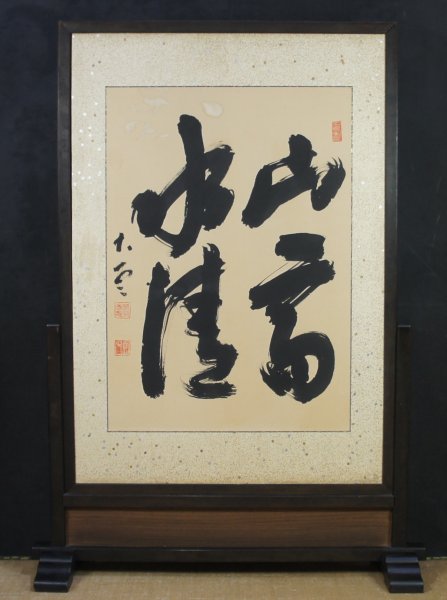 山高
水清
大雲